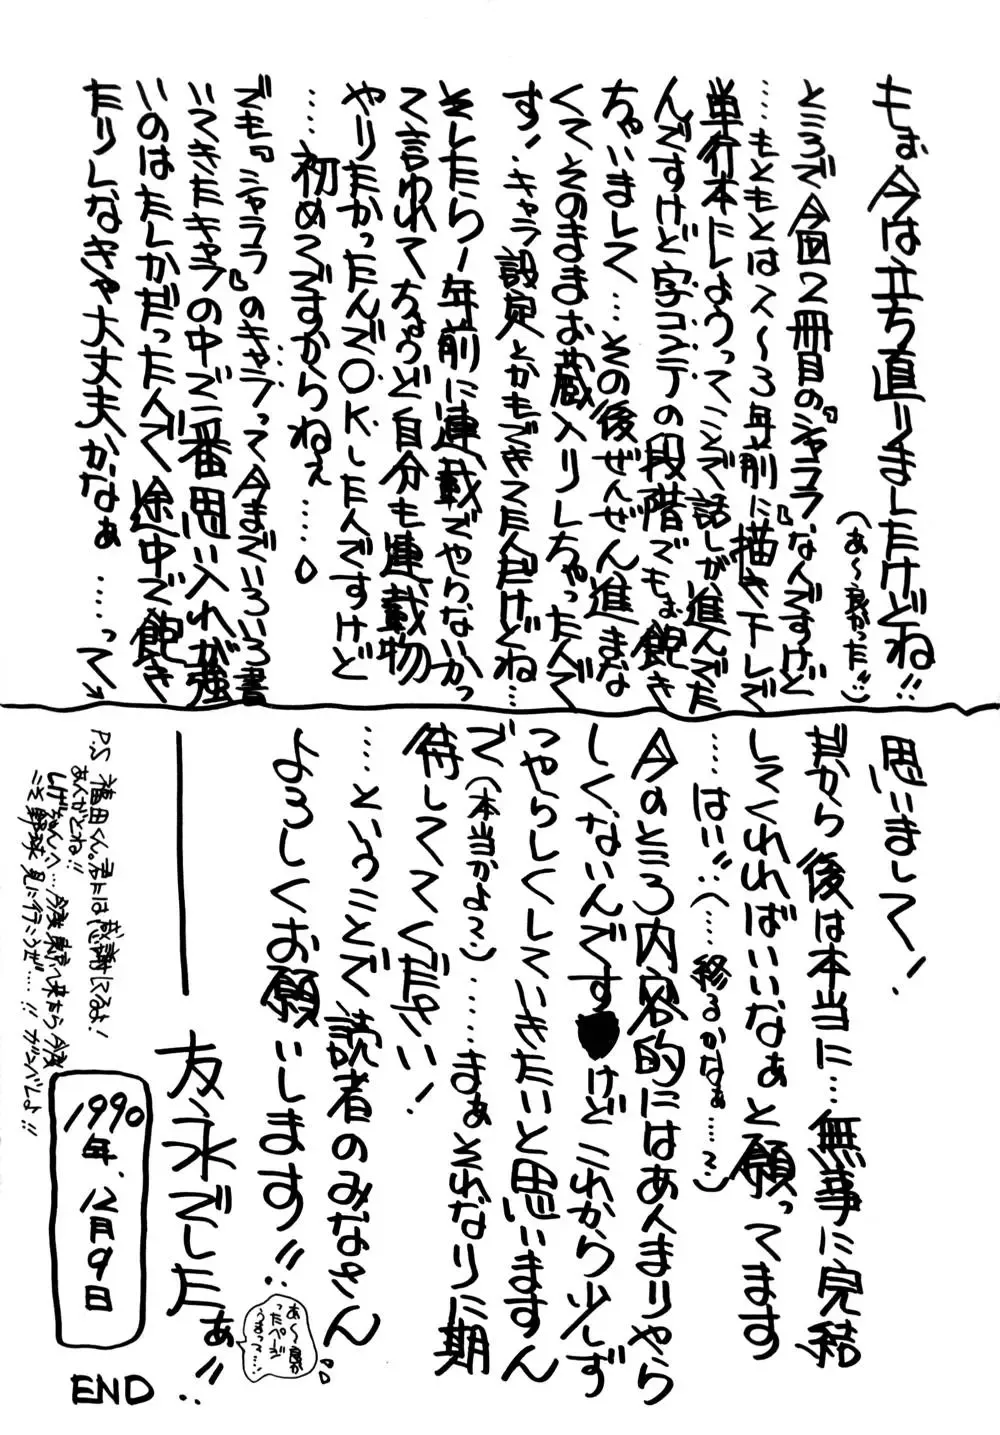 もぉ今は立ち直りましたけどね!!
(あ〜良かった‥)
ところで今回2冊目の『シャララ』なんですけど
‥‥もともとは2〜3年前に描き下しで
単行本にしようってことで話しが進んでた
んですけど字コンテの段階でもぉ飽き
ちゃいまして…その後ぜんぜん進まな
くてそのままお蔵入りしちゃったんで
す!キャラ設定とかもできてたんだけどね…
そしたら1年前に連載でやらないかっ
て言われてちょうど自分も連載物
やりたかったんでOKしたんですけど
‥‥初めてですからねぇ‥‥‥
でも『シャララ』のキャラって今までいろいろ書
いてきたキャラの中で一番思い入れが強
いのはたしかだったんで途中で飽き
たりしなきゃ大丈夫かなぁ‥‥って
思いまして!
だから後は本当に…無事に完結
してくれればいいなぁと願ってます
‥‥はい‥(‥‥終るかなぁ‥‥)
今のところ内容的にはあんまりやら
しくないんです♥けどこれから少しず
つやらしくしていきたいと思いますん
で(本当かよ〜)‥‥‥まぁそれなりに期
待してて下さい!
‥‥ということで読者のみなさん
よろしくお願いします!!
あ〜良か
ったページ
うまって…!
――友永でしたぁ!!
P.S 福田くん。君には感謝してるよ!
ありがとね!!
しげちゃんへ…今度東京へ来たら今度
こそ野球見に行こうぜ…!!ガンバレよ!!
1990年、12月9日
END